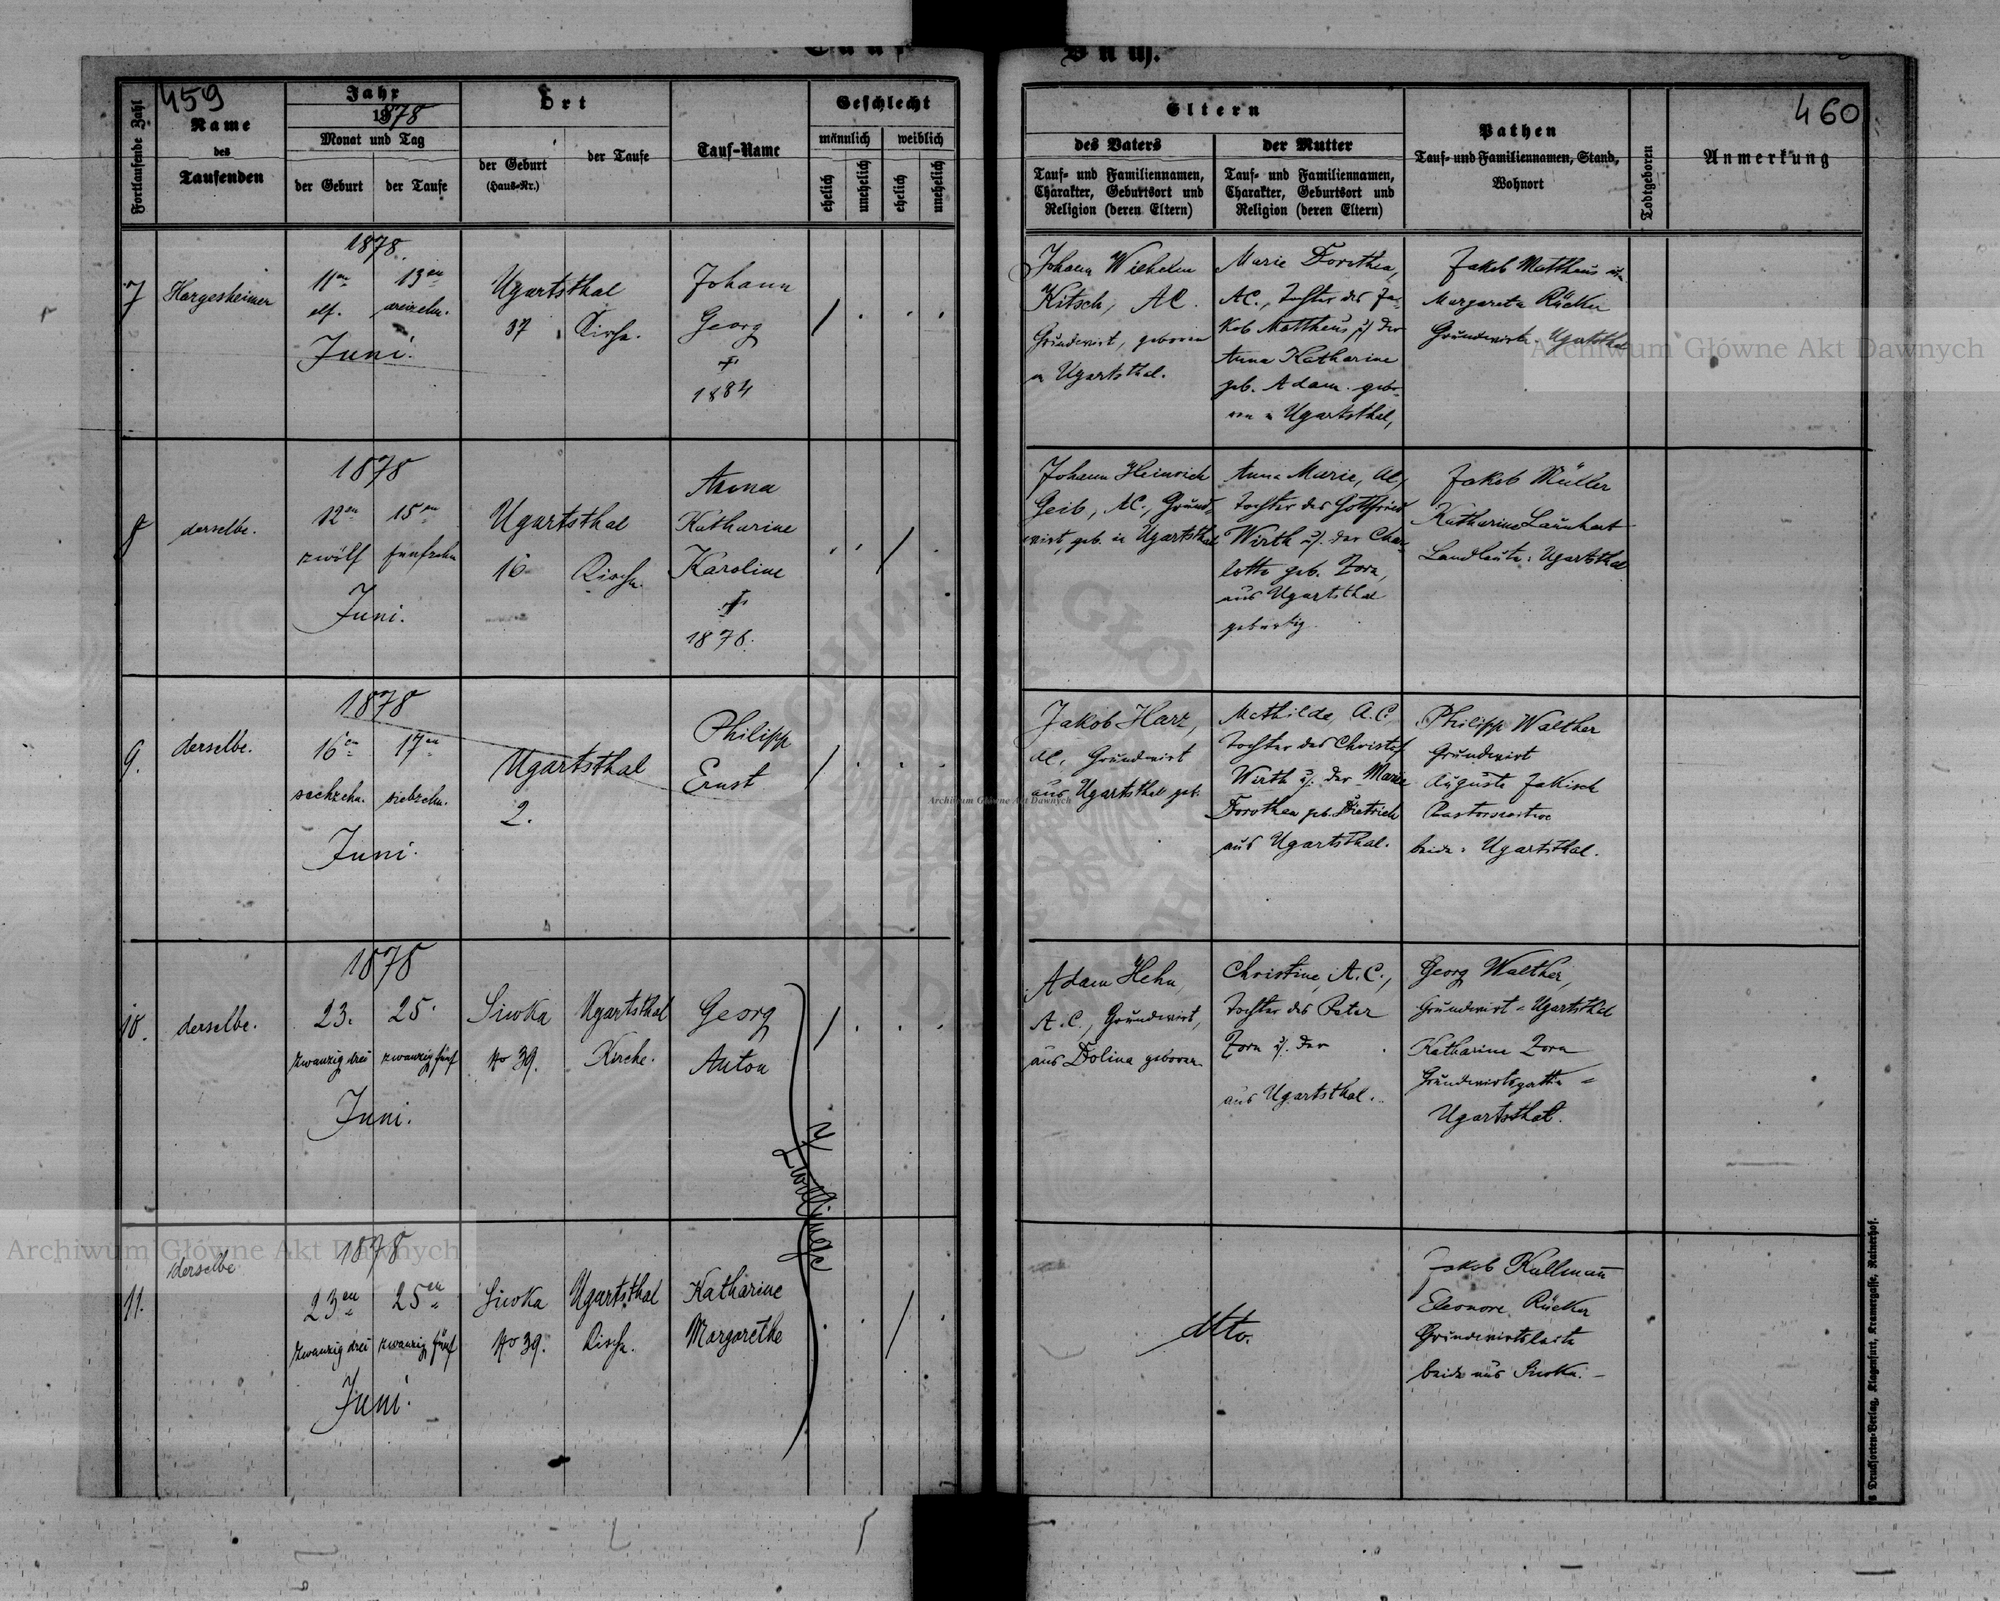 Tauf-
Buch.
459
460
Fortlaufende Zahl
Name
des
Taufenden
Jahr
1878
Monat und Tag
der Geburt
der Taufe
Ort
der Geburt
(Haus-Nr.)
der Taufe
Tauf-Name
Geschlecht
männlich
weiblich
ehelich
unehelich
ehelich
unehelich
Eltern
des Vaters
Tauf- und Familiennamen,
Charakter, Geburtsort und
Religion (deren Eltern)
der Mutter
Tauf- und Familiennamen,
Charakter, Geburtsort und
Religion (deren Eltern)
Pathen
Tauf- und Familiennamen, Stand,
Wohnort
Todtgeboren
Anmerkung
7
Hargesheimer
1878.
11en
13en
elf.
dreizehn.
Juni.
Ugartsthal
37
Kirche.
Johann
Georg
†
1884
Johann Wilhelm
Kitsch, AC.
Grundwirt, geboren
in Ugartsthal.
Marie Dorothea,
AC., Tochter des Ja-
kob Mattheus u. der
Anna Katharine
geb. Adam. gebo-
ren in Ugartsthal,
Jakob Mattheus
Margareta Rücker
Grundwirte. Ugartsthal
8
derselbe.
1878
12en
15en
zwölf
fünfzehn
Juni.
Ugartsthal
16
Kirche.
Anna
Katharine
Karoline
†
1878.
Johann Heinrich
Geib, AC., Grund-
wirt, geb. in Ugartsthal
Anna Marie, AC,
Tochter des Gottfried
Wirth u. der Char-
lotte geb. Zorn,
aus Ugartsthal
gebürtig.
Jakob Müller
Katharine Launhart
Landleute: Ugartsthal
9.
derselbe.
1878
16en
17en
sechzehn.
siebzehn.
Juni.
Ugartsthal
2.
Philipp
Ernst
Jakob Harz,
AC, Grundwirt
aus Ugartsthal geb.
Mathilde, A.C.
Tochter des Christof
Wirth u. der Marie
Dorothea geb. Dietrich
aus Ugartsthal.
Philipp Walther
Grundwirt
Auguste Jakisch
beide: Ugartsthal.
10.
derselbe.
1878
23.
25.
zwanzig drei
zwanzig fünf
Juni.
Siwka
No 39.
Ugartsthal
Kirche.
Georg
Anton
Zwillinge
Adam Hehn,
A.C., Grundwirt,
aus Dolina geboren
Christine, A.C.,
Tochter des Peter
Zorn u. der
aus Ugartsthal.
Georg Walther,
Grundwirt = Ugartsthal
Katharine Zorn
Grundwirtsgattin =
Ugartsthal.
11.
derselbe
1878
23en
25en
zwanzig drei
zwanzig fünf
Juni.
Siwka
No 39.
Ugartsthal
Kirche.
Katharine
Margarethe
dtto.
Jakob Kullmann
Eleonore Rücker
Grundwirtsleute
beide aus Siwka.
Drucksorten-Verlag, Klagenfurt, Kramergasse, Rainerhof.
Archiwum Główne Akt Dawnych
Archiwum Główne Akt Dawnych
Archiwum Główne Akt Dawnych
ARCHIWUM GŁÓWNE AKT DAWNYCH